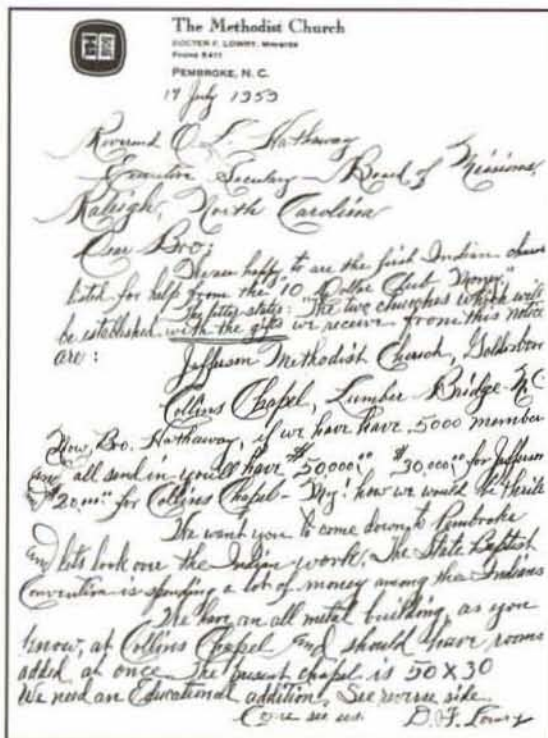 The Methodist Church
DOCTER F. LOWRY, MINISTER
PHONE 5411
PEMBROKE, N. C.
17 July 1959
Reverend O. L. Hathaway
Executive Secretary - Board of Missions
Raleigh, North Carolina
Dear Bro:
happy to are the first Indian
listed for help from the "10 Dollar Club Money."
The letter states: "The two churches which will
be established with the gifts we receive from this notice
are:
Jefferson Methodist Church, Goldsboro
Collins Chapel, Lumber Bridge - N.C.
Now, Bro. Hathaway, if we have have 5000 member
and all send in you'll have $50,000.00 $30,000.00 for Jefferson
and $20,000 for Collins Chapel - My! how we would be thrille
We want you to come down to Pembroke
and lets look over the Indian work. The State Baptist
Convention is spending a lot of money among the Indians
We have an all metal building, as you
know, at Collins Chapel and should have rooms
added at once. The present chapel is 50 X 30
We need an Educational addition. See reverse side.
Come see us. D. F. Lowry